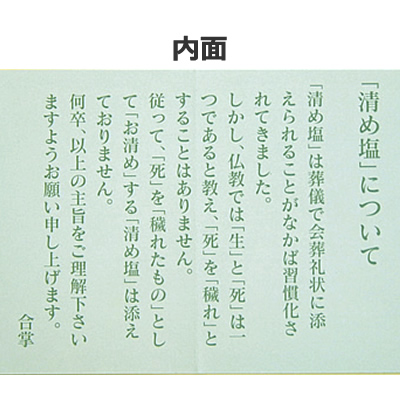 内面
「清め塩」について
「清め塩」は葬儀で会葬礼状に添
えられることがなかば習慣化さ
れてきました。
しかし、仏教では「生」と「死」は一
つであると教え、「死」を「穢れ」と
することはありません。
従って、「死」を「穢れたもの」とし
て「お清め」する「清め塩」は添え
ておりません。
何卒、以上の主旨をご理解下さい
ますようお願い申し上げます。
合掌